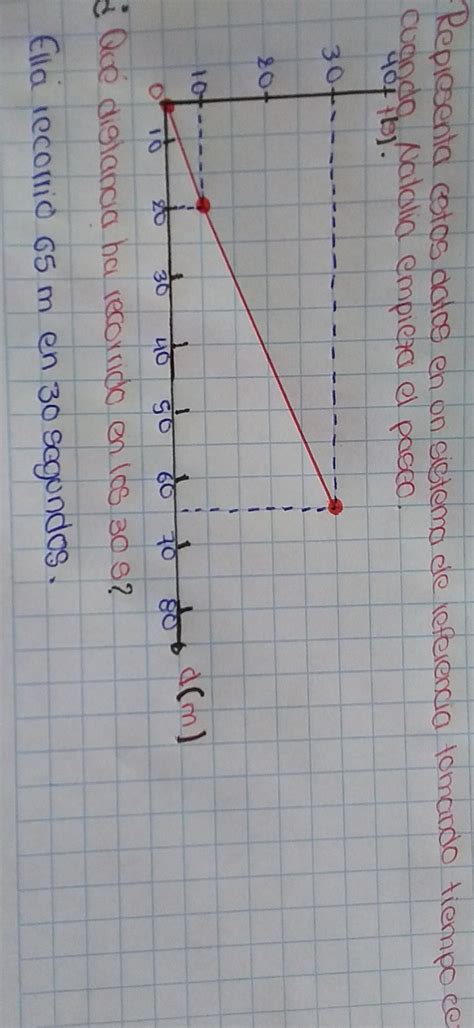 Representa estos datos en un sistema de referencia tomando tiempo ce
cuando Natalia empieza el paseo.
40 t(s).
30
20
10
0
10 20 30 40 50 60 70 80 d(m)
¿Qué distancia ha recorrido en los 30 s?
Ella recorrió 65 m en 30 segundos.